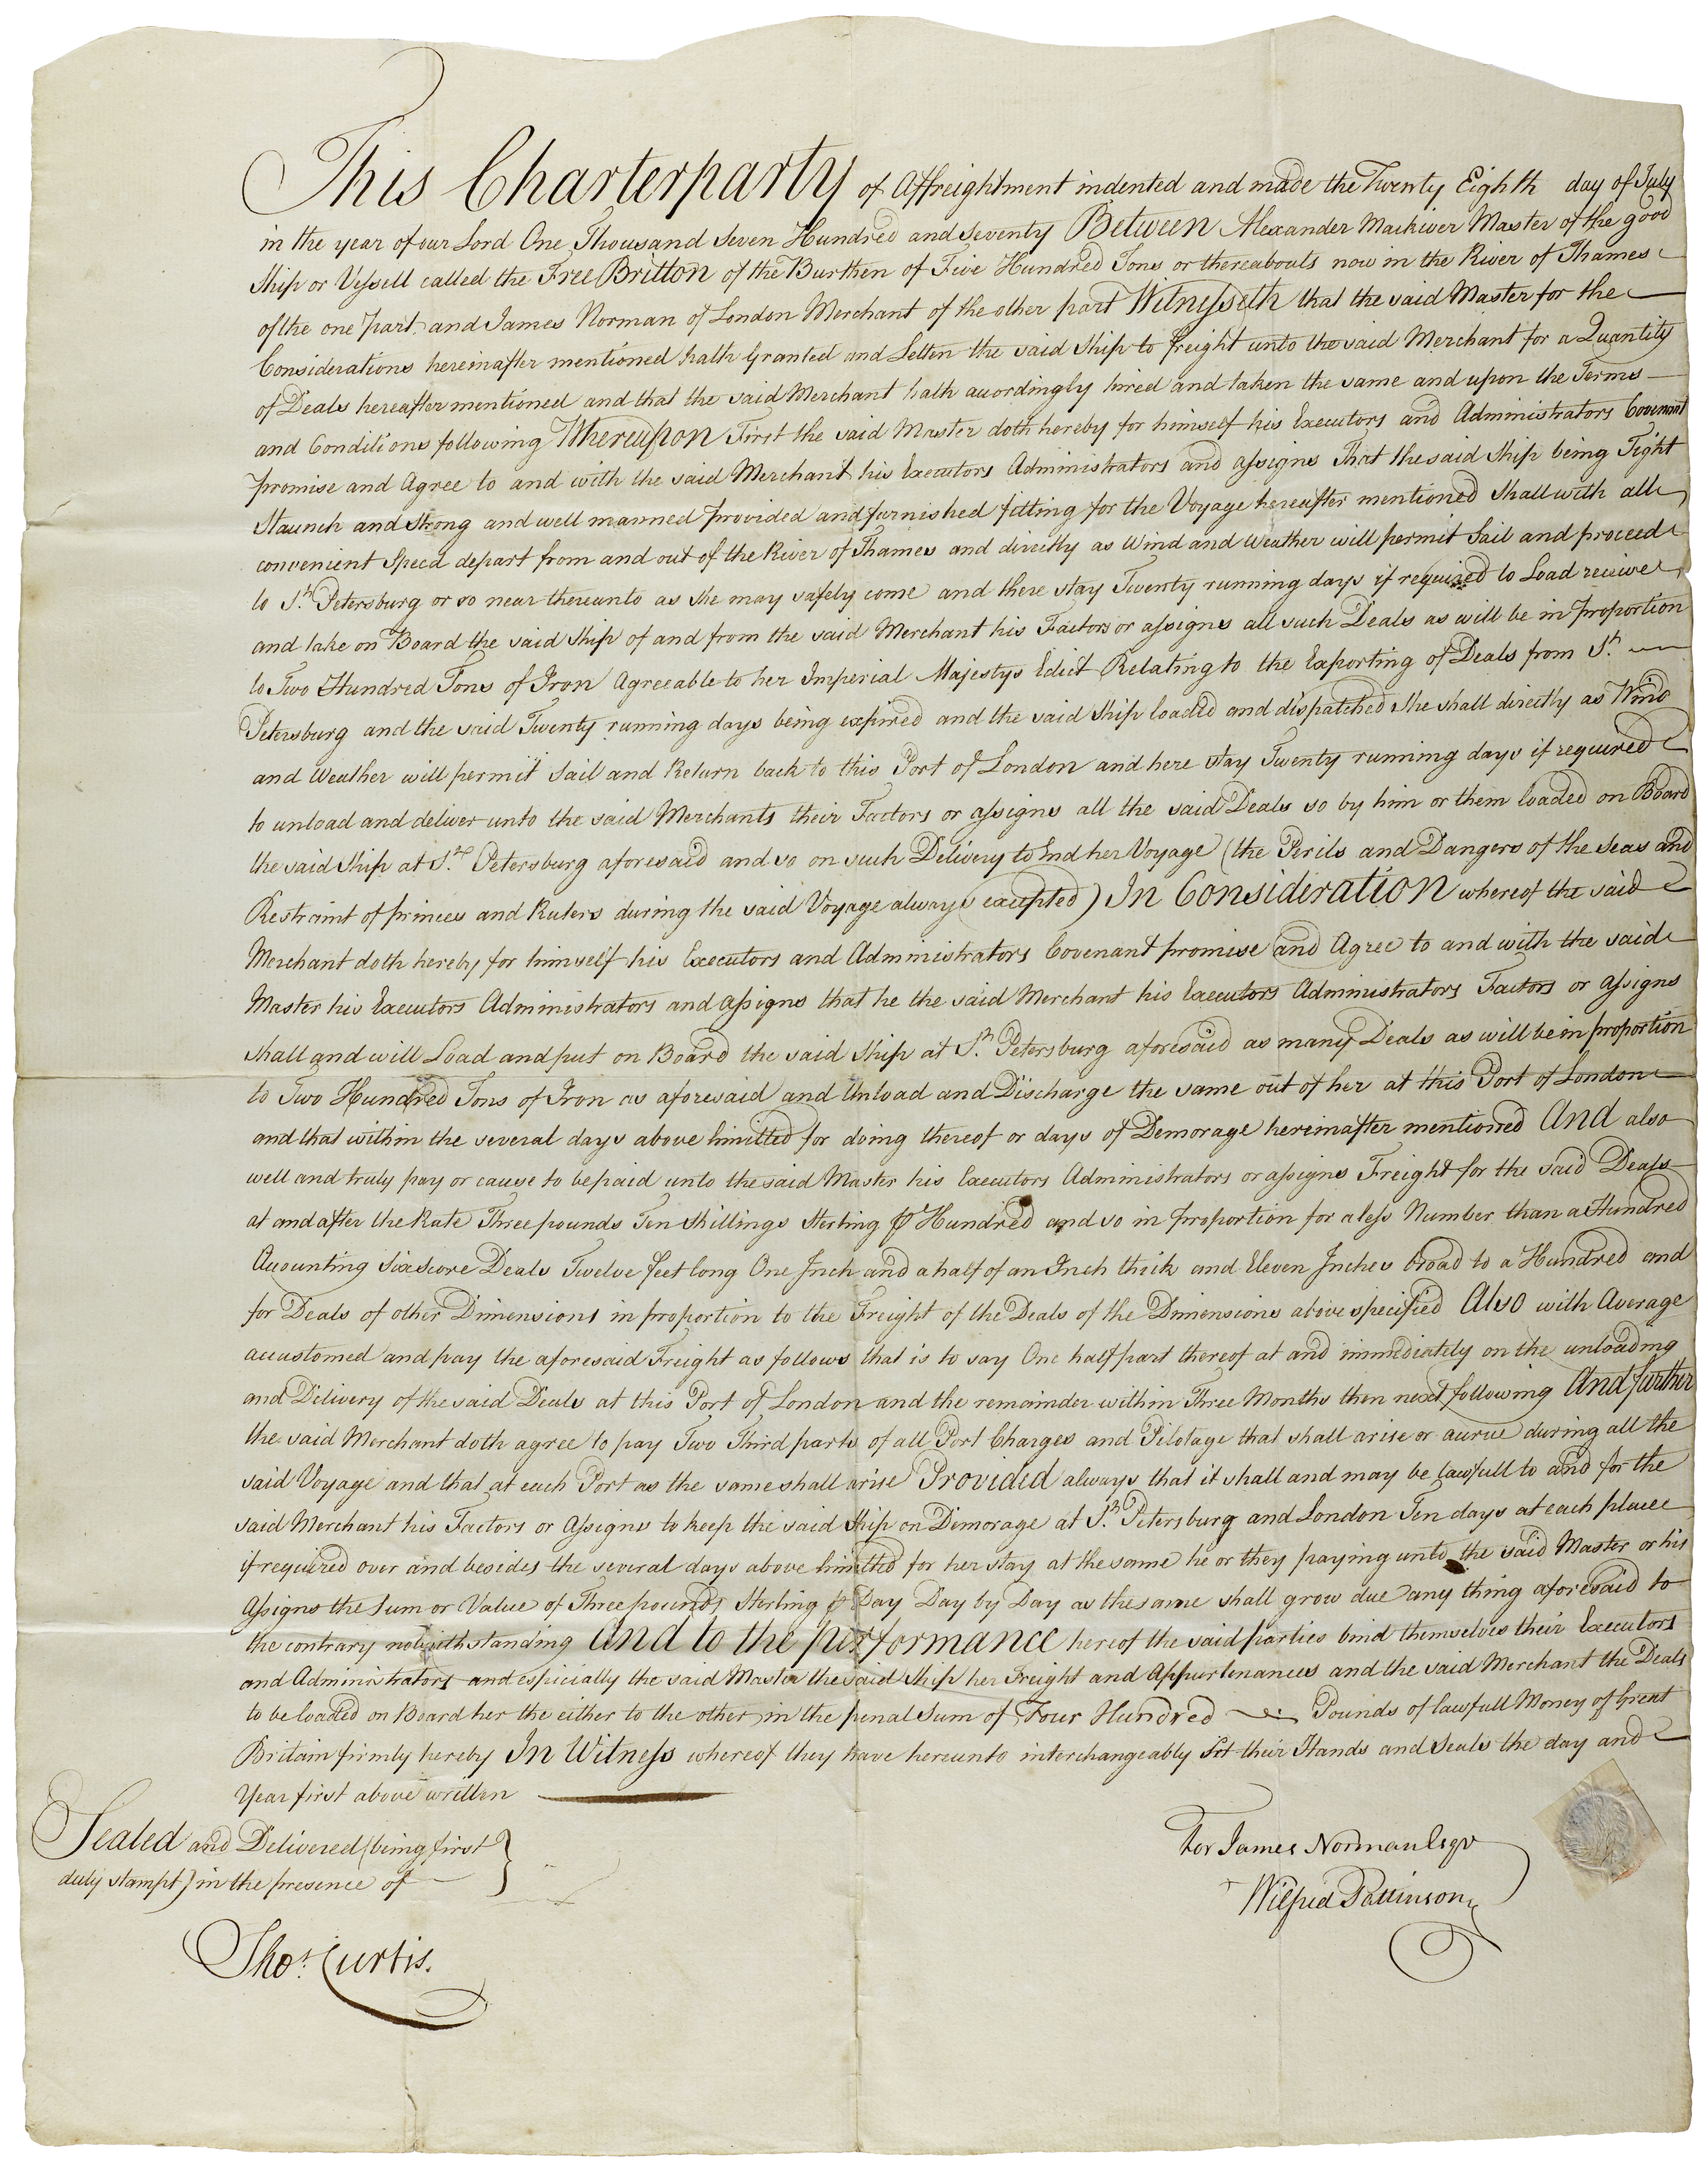 This Charterparty of Affreightment indented and made the Twenty Eighth day of July
in the year of our Lord One Thousand Seven Hundred and Seventy Between Alexander Mackiver Master of the good
Ship or Vessell called the Free Britton of the Burthen of Five Hundred Tons or thereabouts now in the River of Thames
of the one part, and James Norman of London Merchant of the other part Witnesseth that the said Master for the
Considerations hereinafter mentioned hath Granted and Letten the said Ship to freight unto the said Merchant for a Quantity
of Deals hereafter mentioned and that the said Merchant hath accordingly hired and taken the same and upon the Terms
and Conditions following Whereupon First the said Master doth hereby for himself his Executors and Administrators Covenant
promise and Agree to and with the said Merchant his Executors Administrators and assigns That the said Ship being Tight
Staunch and Strong and well manned provided and furnished fitting for the Voyage hereafter mentioned Shall with all
convenient Speed depart from and out of the River of Thames and directly as Wind and Weather will permit Sail and proceed
to St. Petersburg or so near thereunto as she may safely come and there stay Twenty running days if required to Load receive
and take on Board the said Ship of and from the said Merchant his Factors or assigns all such Deals as will be in proportion
to Two Hundred Tons of Iron Agreeable to her Imperial Majestys Edict Relating to the Exporting of Deals from St.
Petersburg and the said Twenty running days being expired and the said Ship loaded and dispatched She shall directly as Wind
and Weather will permit Sail and Return back to this Port of London and here stay Twenty running days if required
to unload and deliver unto the said Merchants their Factors or assigns all the said Deals so by him or them loaded on Board
the said Ship at St. Petersburg aforesaid and so on such Delivery to End her Voyage (the Perils and Dangers of the Seas and
Restraint of princes and Rulers during the said Voyage always excepted) In Consideration whereof the said
Merchant doth hereby for himself his Executors and Administrators Covenant promise and Agree to and with the said
Master his Executors Administrators and assigns that he the said Merchant his Executors Administrators Factors or assigns
shall and will Load and put on Board the said Ship at St. Petersburg aforesaid as many Deals as will be in proportion
to Two Hundred Tons of Iron as aforesaid and Unload and Discharge the same out of her at this Port of London
and that within the several days above limitted for doing thereof or days of Demorage hereinafter mentioned And also
well and truly pay or cause to be paid unto the said Master his Executors Administrators or assigns Freight for the said Deals
at and after the Rate Three pounds Ten Shillings Sterling ⅌ Hundred and so in proportion for a less Number than a Hundred
Accounting Six Score Deals Twelve feet long One Inch and a half of an Inch thick and Eleven Inches broad to a Hundred and
for Deals of other Dimensions in proportion to the Freight of the Deals of the Dimensions above specified Also with Average
accustomed and pay the aforesaid Freight as follows that is to say One half part thereof at and immediately on the unloading
and Delivery of the said Deals at this Port of London and the remainder within Three Months then next following And further
the said Merchant doth agree to pay Two Third parts of all Port Charges and Pilotage that shall arise or accrue during all the
said Voyage and that at each Port as the same shall arise Provided always that it shall and may be lawfull to and for the
said Merchant his Factors or Assigns to keep the said Ship on Demorage at St. Petersburg and London Ten days at each place
if required over and besides the several days above limitted for her stay at the same he or they paying unto the said Master or his
Assigns the Sum or Value of Three pounds Sterling ⅌ Day Day by Day as the same shall grow due any thing aforesaid to
the contrary notwithstanding And to the performance hereof the said parties bind themselves their Executors
and Administrators and especially the said Master the said Ship her Freight and Appurtenances and the said Merchant the Deals
to be loaded on Board her the either to the other in the penal Sum of Four Hundred Pounds of lawfull Money of Great
Britain firmly hereby In Witness whereof they have hereunto interchangeably Set their Hands and Seals the day and
Year first above written
Sealed and Delivered (being first
duly stampt) in the presence of
Thos. Curtis.
For James Norman Esqr
Wilfrid Pattinson